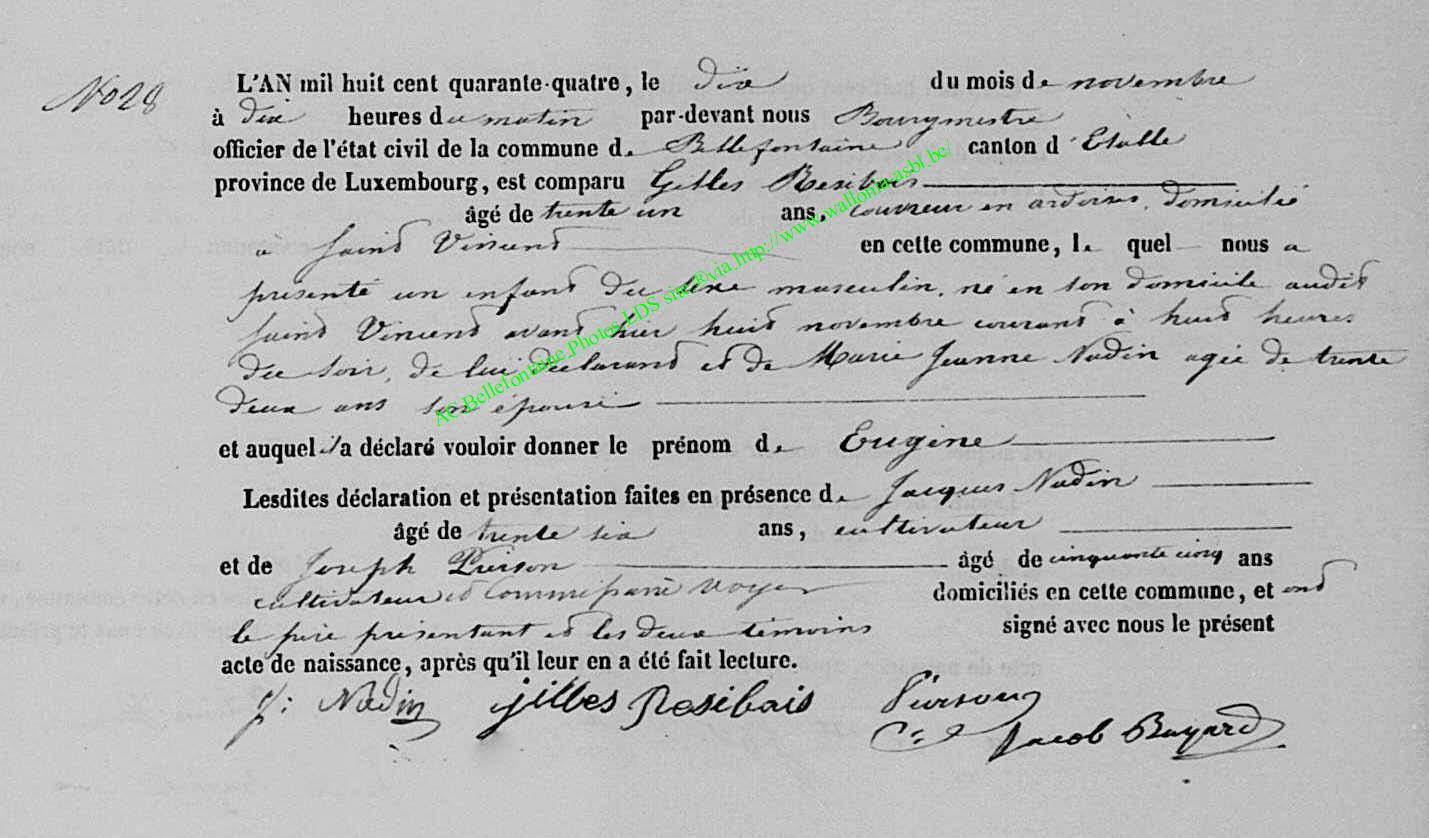 No 28
L'AN mil huit cent quarante-quatre, le dix du mois de novembre
à dix heures du matin par-devant nous Bourgmestre
officier de l'état civil de la commune de Bellefontaine canton d'Etalle
province de Luxembourg, est comparu Gilles Resibois
âgé de trente un ans, couvreur en ardoises, domicilié
à Saint Vincent en cette commune, lequel nous a
présenté un enfant du sexe masculin, né en son domicile audit
Saint Vincent avant hier huit novembre courant à huit heures
du soir, de lui déclarant et de Marie Jeanne Nadin agée de trente
deux ans son épouse
et auquel il a déclaré vouloir donner le prénom de Eugène
Lesdites déclaration et présentation faites en présence de Jacques Nadin
âgé de trente six ans, cultivateur
et de Joseph Pierson âgé de cinquante cinq ans
cultivateur et Commissaire voyer domiciliés en cette commune, et ont
le père présentant et les deux témoins signé avec nous le présent
acte de naissance, après qu'il leur en a été fait lecture.
J: Nadin gilles Resibois Pierson
Jacob Buyard
AC Bellefontaine Photos LDS site®via http://www.wallonia-asbl.be/